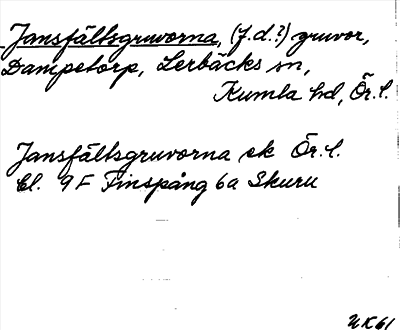 Jansfältsgruvorna, (f.d.?) gruvor,
Dampetorp, Lerbäcks sn,
Kumla hd, Ör. l.
Jansfältsgruvorna ek Ör. l.
Bl. 9F Finspång 6a Skuru
UK61